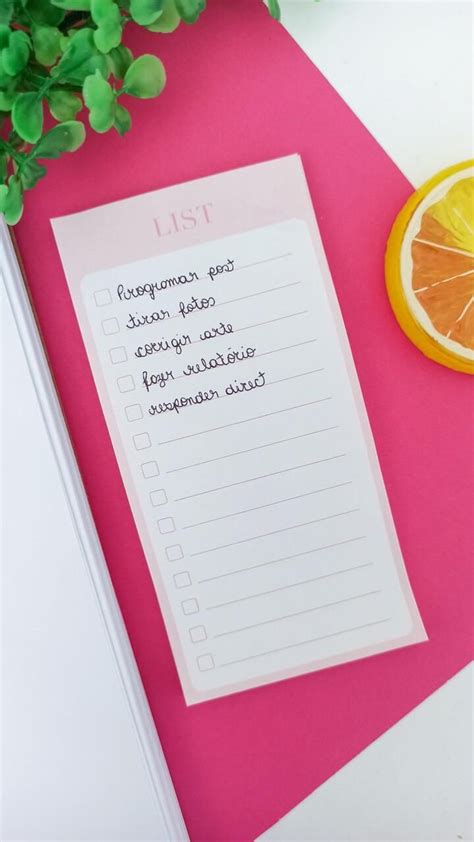 LIST
Programar post
tirar fotos
corrigir arte
fazer relatório
responder direct